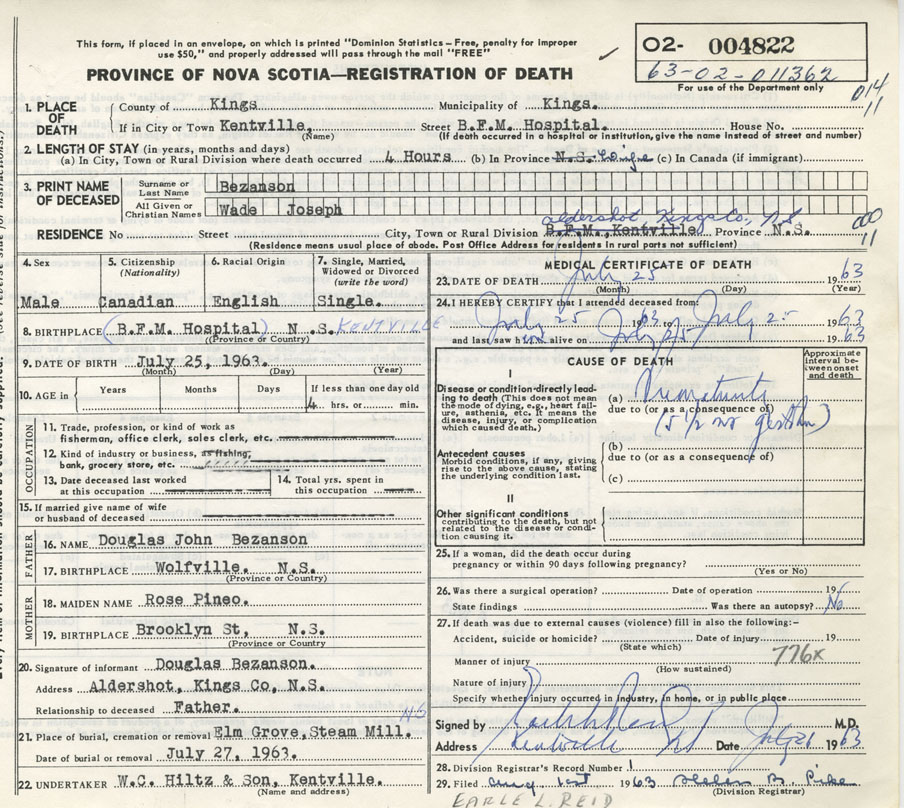 This form, if placed in an envelope, on which is printed "Dominion Statistics – Free, penalty for improper
use $50," and properly addressed will pass through the mail "FREE"
PROVINCE OF NOVA SCOTIA—REGISTRATION OF DEATH
O2- 004822
63-02-011362
For use of the Department only
014
11
1. PLACE OF DEATH
County of Kings Municipality of Kings.
If in City or Town Kentville. Street B.F.M. Hospital. House No.
(Name) (If death occurred in a hospital or institution, give the name instead of street and number)
2. LENGTH OF STAY (in years, months and days)
(a) In City, Town or Rural Division where death occurred 4 Hours (b) In Province N.S. (c) In Canada (if immigrant)
3. PRINT NAME OF DECEASED
Surname or Last Name Bezanson
All Given or Christian Names Wade Joseph
aldershot, Kings Co, N.S
RESIDENCE No Street City, Town or Rural Division B.F.M., Kentville Province N.S.
000
11
(Residence means usual place of abode. Post Office Address for residents in rural parts not sufficient)
4. Sex
Male
5. Citizenship
(Nationality)
Canadian
6. Racial Origin
English
7. Single, Married, Widowed or Divorced
(write the word)
Single.
8. BIRTHPLACE (B.F.M. Hospital) N.S. KENTVILLE
(Province or Country)
9. DATE OF BIRTH July 25, 1963.
(Month) (Day) (Year)
10. AGE in Years Months Days If less than one day old
4 hrs. or min.
OCCUPATION
11. Trade, profession, or kind of work as
fisherman, office clerk, sales clerk, etc.
12. Kind of industry or business, as fishing,
bank, grocery store, etc.
13. Date deceased last worked
at this occupation
14. Total yrs. spent in
this occupation
15. If married give name of wife
or husband of deceased
FATHER
16. NAME Douglas John Bezanson
17. BIRTHPLACE Wolfville. N.S.
(Province or Country)
MOTHER
18. MAIDEN NAME Rose Pineo.
19. BIRTHPLACE Brooklyn St, N.S.
(Province or Country)
20. Signature of informant Douglas Bezanson.
Address Aldershot, Kings Co, N.S.
Relationship to deceased Father.
NS
21. Place of burial, cremation or removal Elm Grove, Steam Mill.
Date of burial or removal July 27, 1963.
22. UNDERTAKER W.C. Hiltz & Son, Kentville.
(Name and address)
MEDICAL CERTIFICATE OF DEATH
23. DATE OF DEATH July 25 1963
(Month) (Day) (Year)
24. I HEREBY CERTIFY that I attended deceased from:
July 25 1963 to July 25 1963
and last saw h alive on July 25 1963
CAUSE OF DEATH
Approximate interval between onset and death
I
Disease or condition directly leading to death (This does not mean the mode of dying, e.g., heart failure, asthenia, etc. It means the disease, injury, or complication which caused death.)
(a) Prematurity
due to (or as a consequence of)
(5 1/2 mo gestation)
Antecedent causes
Morbid conditions, if any, giving rise to the above cause, stating the underlying condition last.
(b)
due to (or as a consequence of)
(c)
II
Other significant conditions
contributing to the death, but not related to the disease or condition causing it.
25. If a woman, did the death occur during
pregnancy or within 90 days following pregnancy?
(Yes or No)
26. Was there a surgical operation? Date of operation 19
State findings Was there an autopsy? No
27. If death was due to external causes (violence) fill in also the following:-
Accident, suicide or homicide? Date of injury 19
(State which)
Manner of injury 776x
(How sustained)
Nature of injury
Specify whether injury occurred in industry, in home, or in public place
Signed by M.D.
Address Kentville NS Date July 26 1963
28. Division Registrar's Record Number 1
29. Filed Aug 1st 1963 Helen B. Pike
(Division Registrar)
EARLE L. REID